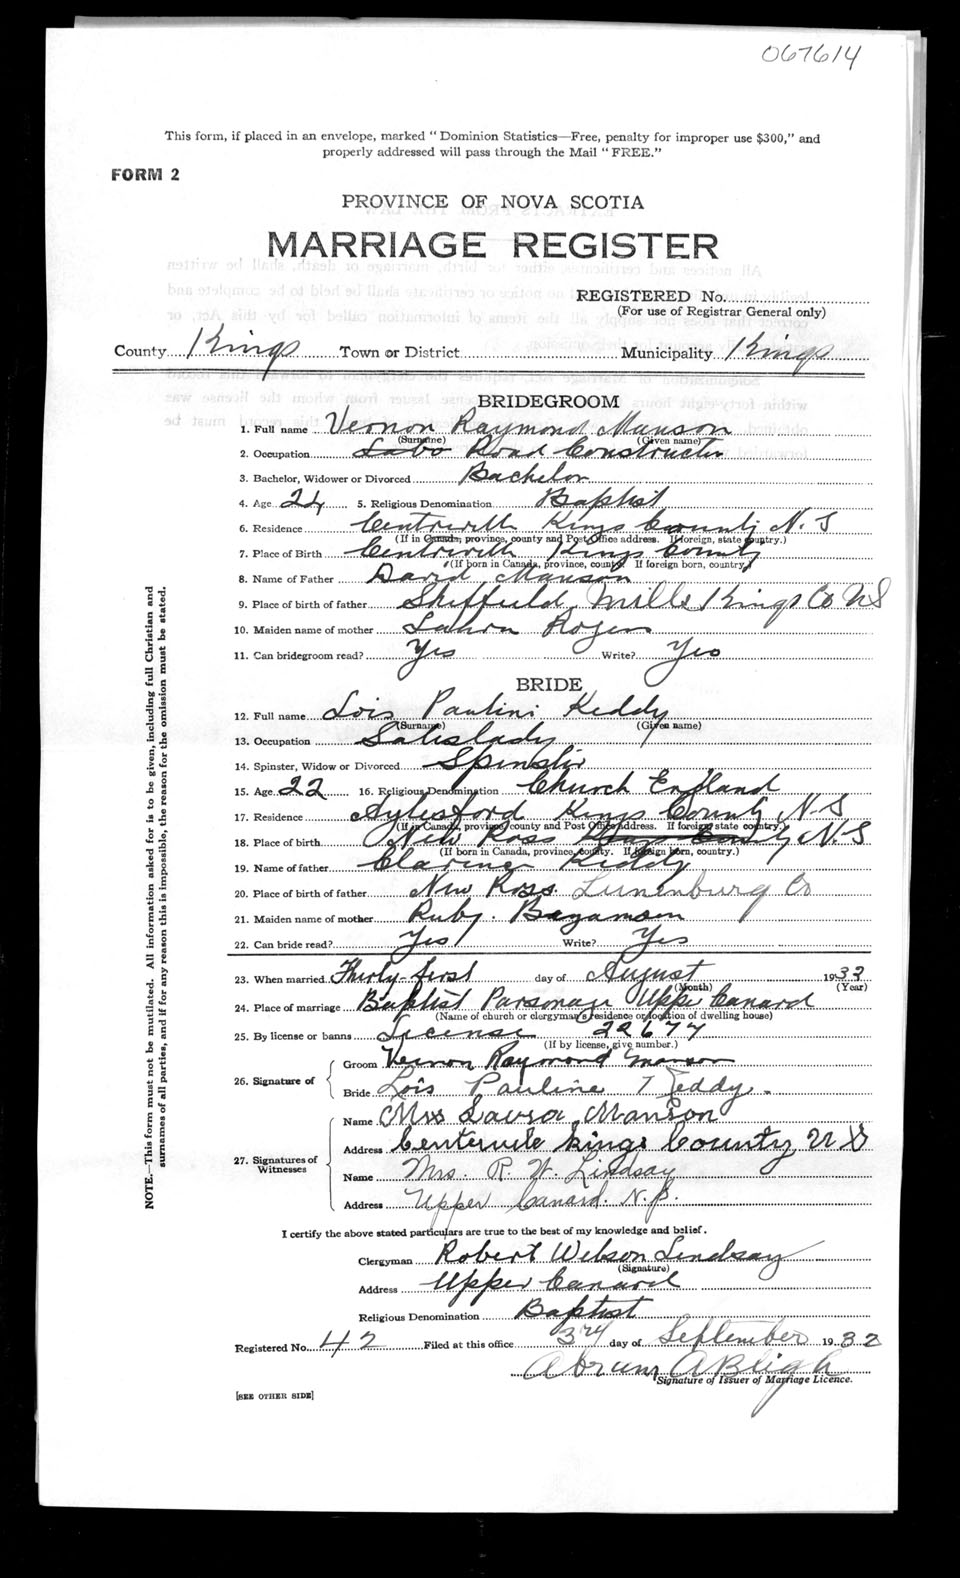 067614
This form, if placed in an envelope, marked "Dominion Statistics—Free, penalty for improper use $300," and
properly addressed will pass through the Mail "FREE."
FORM 2
PROVINCE OF NOVA SCOTIA
MARRIAGE REGISTER
REGISTERED No.
(For use of Registrar General only)
County Kings Town or District Municipality Kings
BRIDEGROOM
1. Full name Vernon Raymond Manson
(Surname) (Given name)
2. Occupation Labo Road Constructer
3. Bachelor, Widower or Divorced Bachelor
4. Age 24 5. Religious Denomination Baptist
6. Residence Kings County N. S
(If in Canada, province, county and Post Office address. If foreign, state country.)
7. Place of Birth Kings County
(If born in Canada, province, county. If foreign born, country.)
8. Name of Father David Manson
9. Place of birth of father Sheffield Mills Kings Co NS
10. Maiden name of mother Laura Rogers
11. Can bridegroom read? Yes Write? Yes
BRIDE
12. Full name Lois Pauline Keddy
(Surname) (Given name)
13. Occupation Saleslady
14. Spinster, Widow or Divorced Spinster
15. Age 22 16. Religious Denomination Church England
17. Residence Aylesford Kings County N S
(If in Canada, province, county and Post Office address. If foreign, state country.)
18. Place of birth New Ross Kings County N. S
(If born in Canada, province, county. If foreign born, country.)
19. Name of father Clarence Keddy
20. Place of birth of father New Ross Lunenburg Co
21. Maiden name of mother Ruby
22. Can bride read? Yes Write? Yes
23. When married Thirty-first day of August 1932
(Month) (Year)
24. Place of marriage Baptist Parsonage Upper Canard
(Name of church or clergyman's residence or location of dwelling house)
25. By license or banns License 22677
(If by license, give number.)
26. Signature of
Groom Vernon Raymond Manson
Bride Lois Pauline Keddy.
27. Signatures of
Witnesses
Name Mrs Laura Manson
Address Centervile kings County N S
Name Mrs. R. W. Lindsay
Address Upper Canard. N.S.
I certify the above stated particulars are true to the best of my knowledge and belief.
Clergyman Robert Lindsay
(Signature)
Address Upper Canard
Religious Denomination Baptist
Registered No. 42 Filed at this office 3rd day of September 1932
Abram A Bligh
Signature of Issuer of Marriage Licence.
[SEE OTHER SIDE]
NOTE.—This form must not be mutilated. All information asked for is to be given, including full Christian and
surnames of all parties, and if for any reason this is impossible, the reason for the omission must be stated.